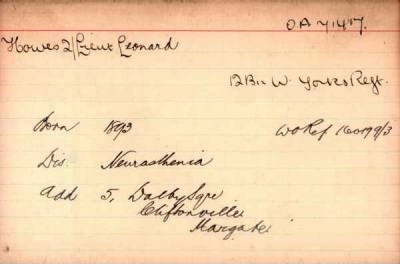 OA 71417.
Howes 2/Lieut Leonard
12Bn W. Yorks Regt.
Born 1893 WO Ref 160199/3
Dis. Neurasthenia
Add 5, Dalby Sqre
Cliftonville
Margate